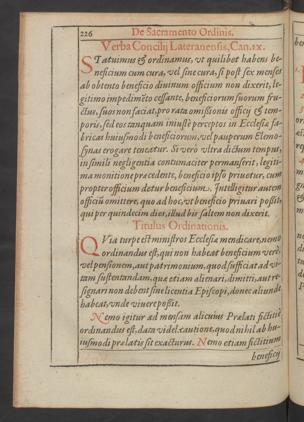 226 De Sacramento Ordinis.
Verba Concilij Lateranensis, Can. ix.
STatuimus & ordinamus, vt quilibet habens be-
neficium cum cura, vel sine cura, si post sex menses
ab obtento beneficio diuinum officium non dixerit, le-
gitimo impedimẽto cessante, beneficiorum suorum fru-
ctus, suos non faciat, pro rata omissionis officij & tem-
poris, sed eos tanquam iniustè perceptos in Ecclesiæ fa-
bricas huiusmodi beneficiorum, vel pauperum Elemo-
synas erogare teneatur. Si verò vltra dictum tempus,
in simili negligentia contumaciter permanserit, legiti-
ma monitione præcedente, beneficio ipso priuetur, cum
propter officium detur beneficium. Intelligitur autem
officiũ omittere, quo ad hoc, vt beneficio priuari possit,
qui per quindecim dies, illud bis saltem non dixerit.
Titulus Ordinationis.
QVia turpe est ministros Ecclesiæ mendicare, nemo
ordinandus est, qui non habeat beneficium verè,
vel pensionem, aut patrimonium, quod sufficiat ad vi-
tam sustentandam, quæ etiam alienari, dimitti, aut re-
signari non debent sine licentia Episcopi, donec aliunde
habeat, vnde viuere possit.
Nemo igitur ad mensam alicuius Prælati fictitiè
ordinandus est, data videl. cautione, quod nihil ab hu-
iusmodi prælatis sit exacturus. Nemo etiam fictitium
beneficij